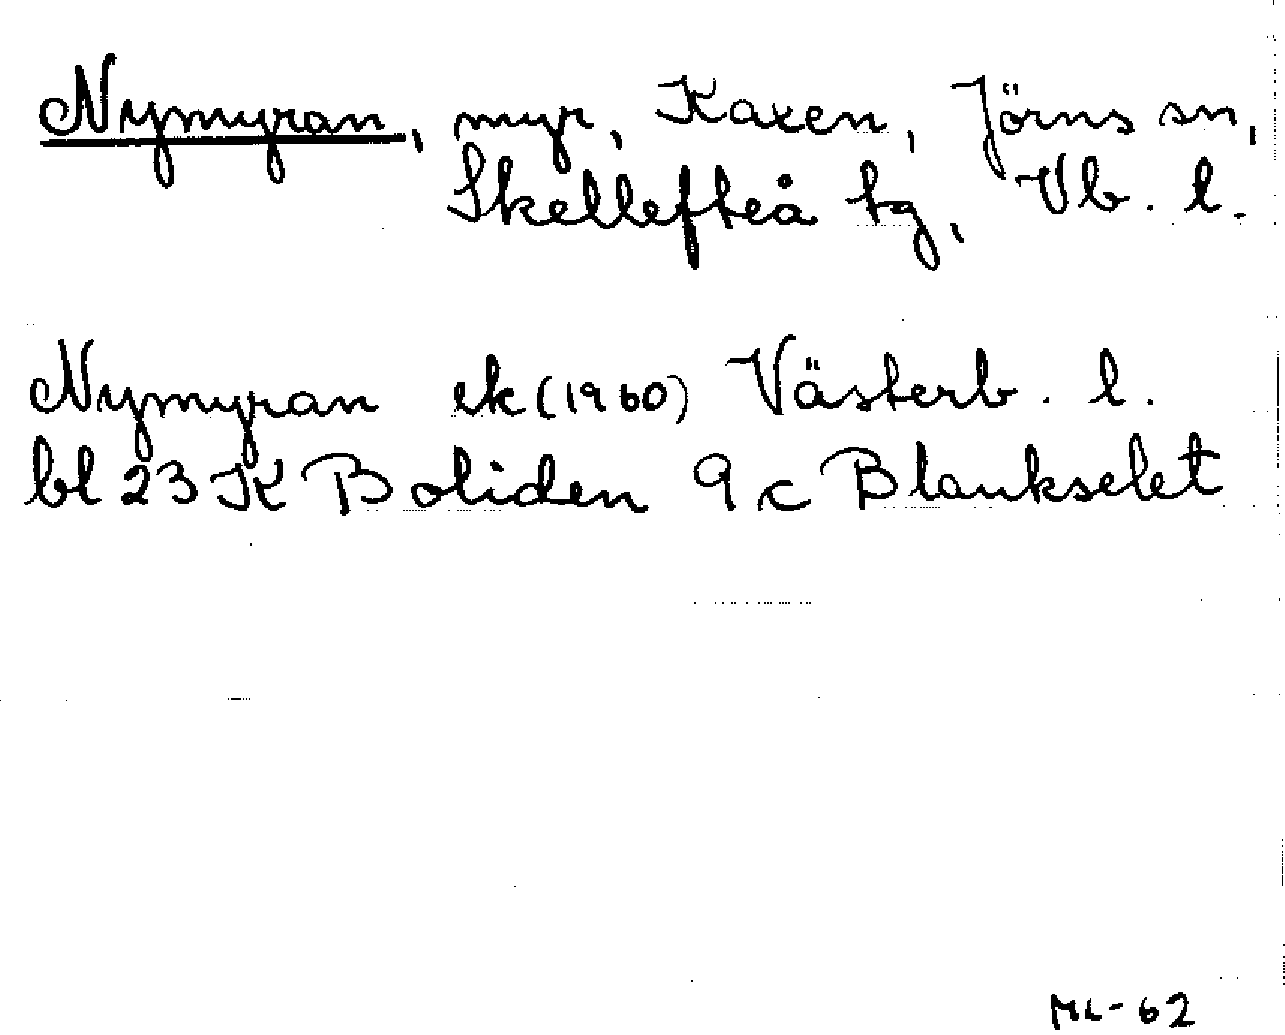 Nymyran, myr, Kaxen, Jörns sn,
Skellefteå tg, Vb. l.
Nymyran ek (1960) Västerb. l.
bl 23 K Boliden 9 c Blankselet
ML-62